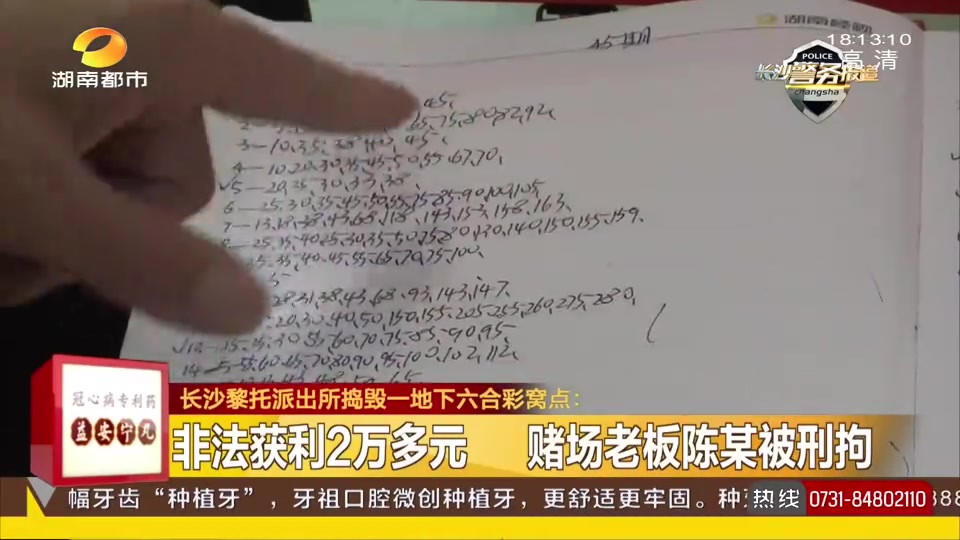 湖南都市
湖南经视
18:13:10
高清
POLICE
长沙警务报道
changsha
45期
45,
65,75,80,82,92,
3—10,35,38,40,45,
4—10,20,30,35,45,50,55,67,70,
√5—20,25,30,33,38,
6—25,30,35,45,50,55,75,85,90,100,105,
7—13,18,38,43,68,118,143,153,158,163,
25,35,40,25,30,35,50,75,80,130,140,150,155,159,
35,40,45,55,65,70,75,100,
28,31,38,43,68,93,143,147,
20,30,40,50,150,155,205,255,260,275,280,
55,60,70,75,85,90,95,
14—5,55,60,65,70,80,90,95,100,102,112,
冠心病专利药
益安宁丸
长沙黎托派出所捣毁一地下六合彩窝点：
非法获利2万多元 赌场老板陈某被刑拘
幅牙齿“种植牙”，牙祖口腔微创种植牙，更舒适更牢固。种
热线 0731-84802110